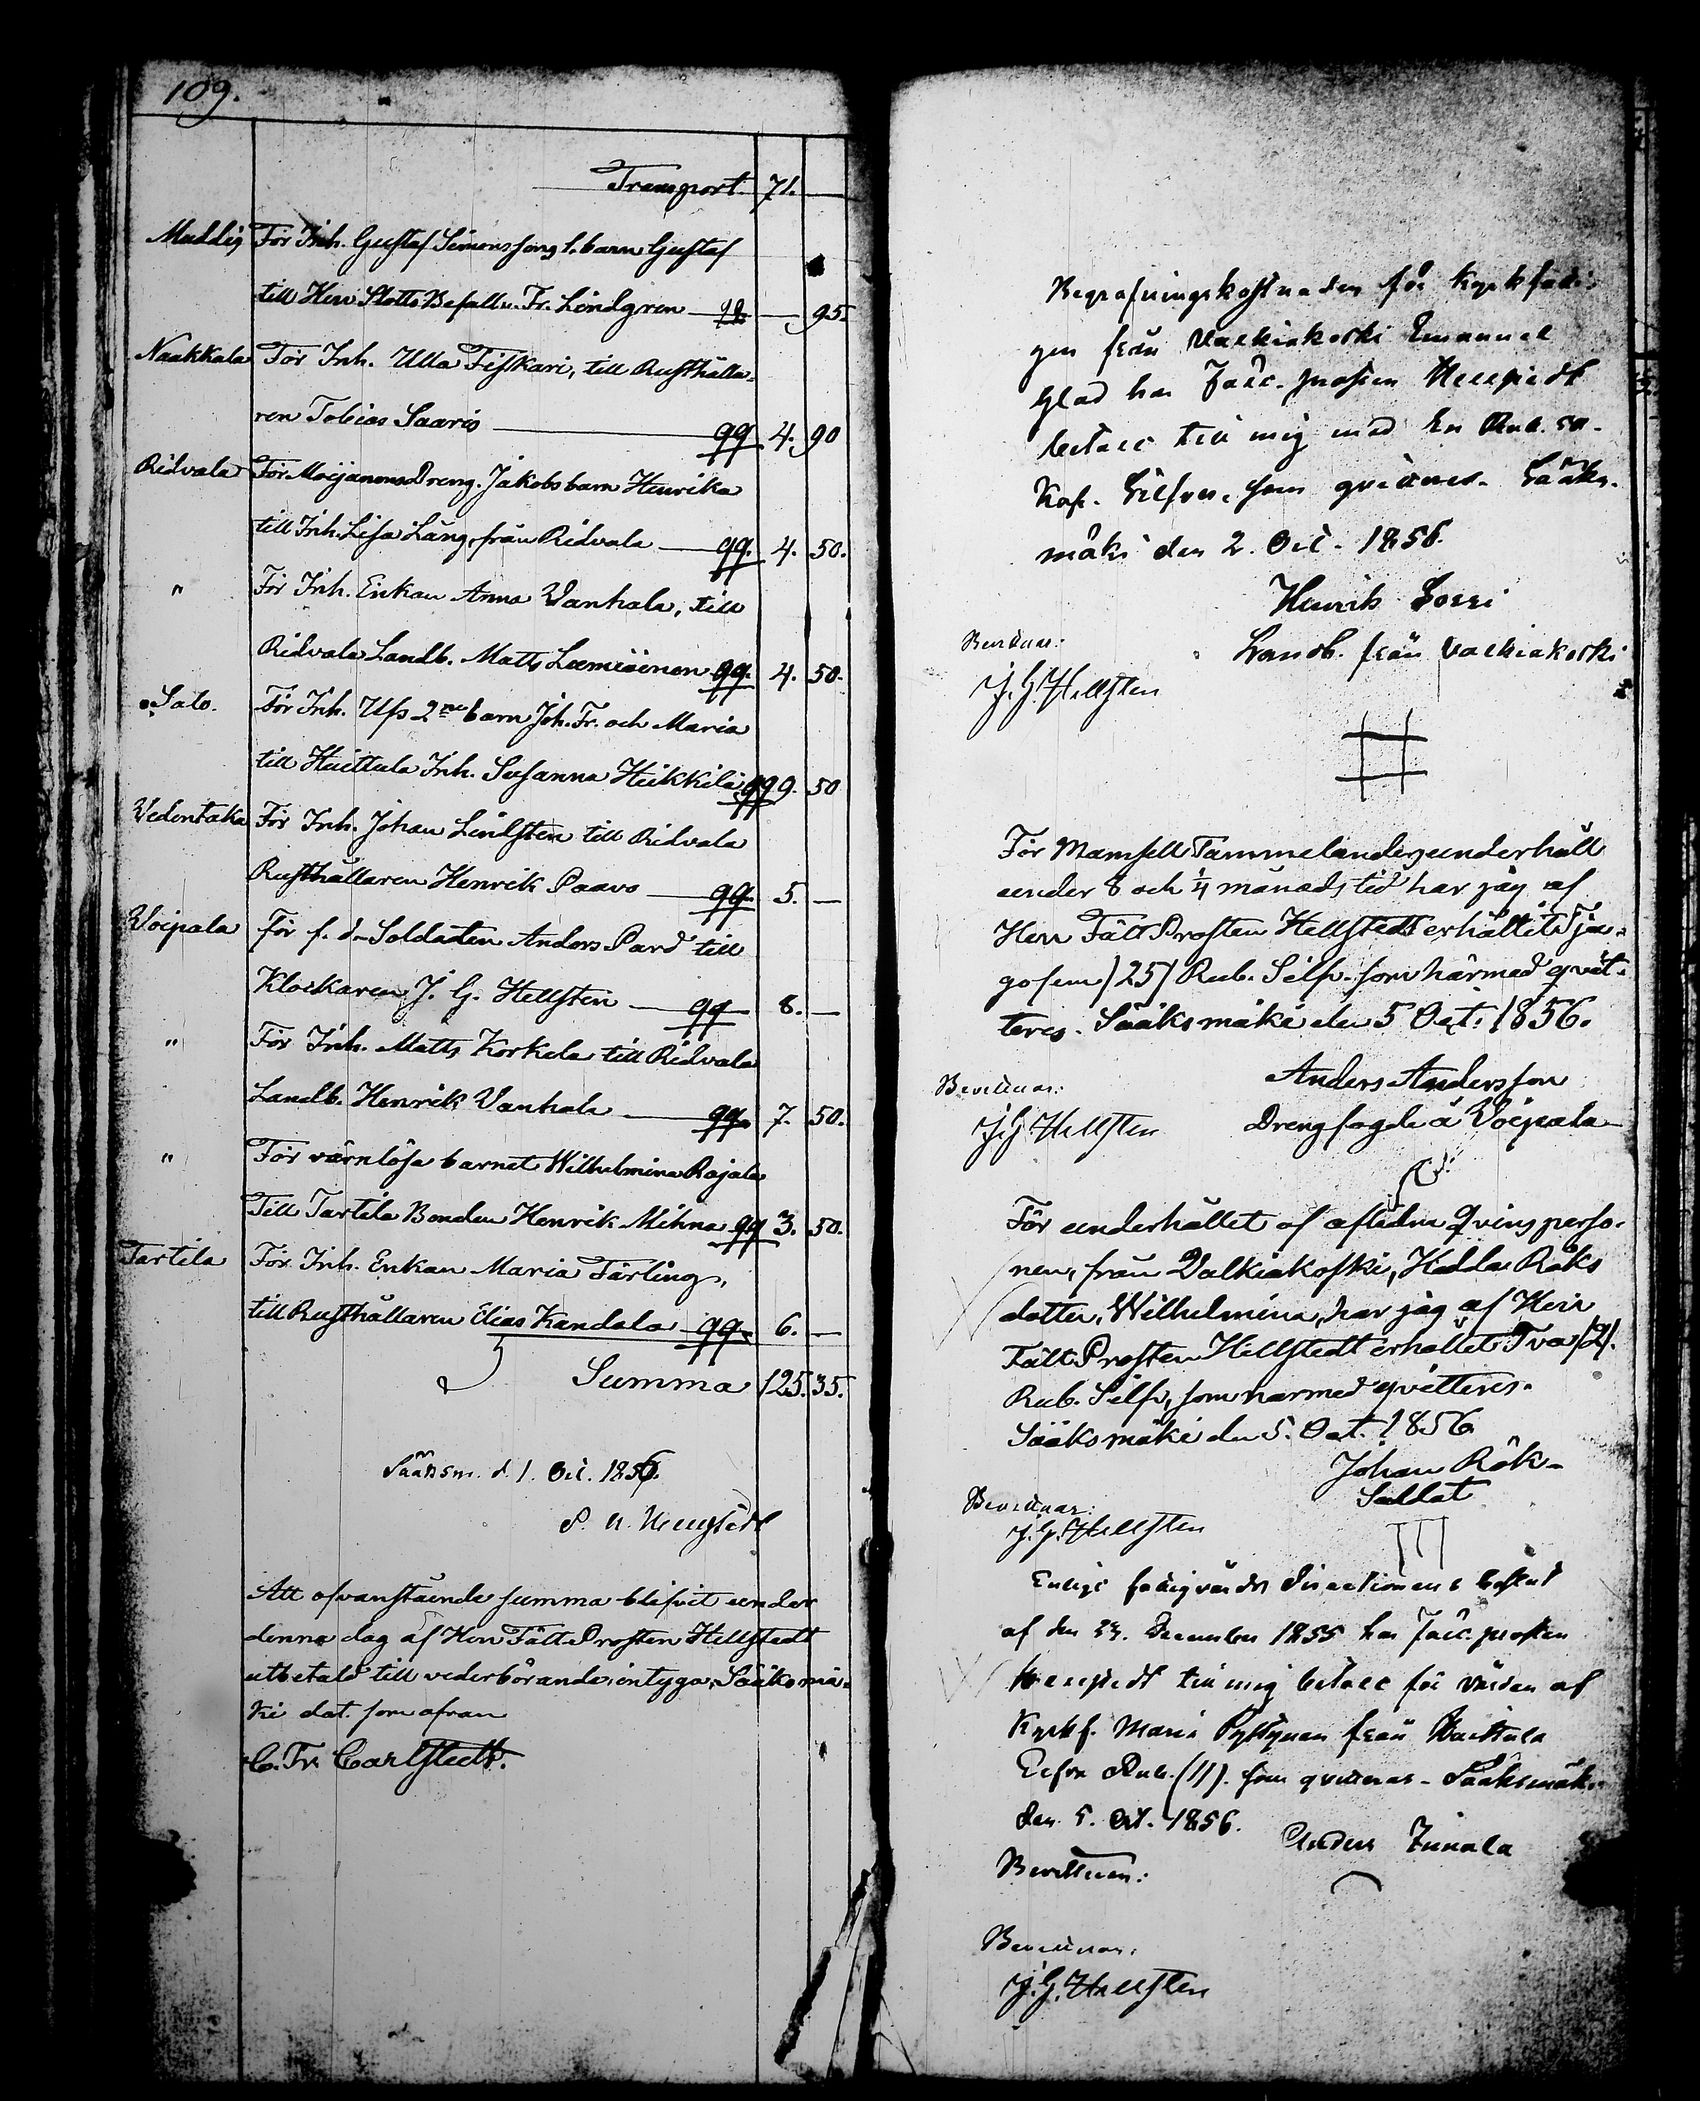 109.
Transport. 71. —
Muddis För Inh. Gustaf Simonssons s. barn Gustaf
till Herr Slotts Befalln. Fr. Lindgren — qq — 95.
Naakkala För Inh. Ulla Fiskari, till Rusthålla-
ren Tobias Saaris — qq 4. 90
Ridvala För Moijanens Dreng. Jakobs barn Henrika
till Inh. Lisa Lång, från Ridvala — qq. 4. 50.
" För Inh. Enkan Anna Vanhala, till
Ridvala Landb. Matts Lemiäinen qq. 4. 50.
Salo. För Inh. Ulfs 2ne barn Joh. Fr. och Maria
till Huittula Inh. Susanna Heikkilä qq 9. 50
Vedentaka För Inh. Johan Lindsten till Ridvala
Rusthållaren Henrik Paavo — qq. 5. —
Voipala för f. d. Soldaten Anders Pard till
Klockaren J. G. Hellsten — qq 8. —
" För Inh. Matts Korkela till Ridvala
Landb. Henrik Vanhala — qq. 7. 50.
" För värnlösa barnet Wilhelmina Rajala
Till Tarttila Bonden Henrik Mihna qq 3. 50.
Tartila För Inh. Enkan Maria Färling,
till Rusthållaren Elias Kandala qq. 6. —
Summa 125. 35.
Sääksm. d. 1. Oct. 1856.
Att ofvanstående summa blifvit under
denna dag af Herr Fält Prosten Hellstedt
utbetald till vederbörande, intyga, Sääksmä-
ki dat. som ofvan
C. Fr. Carlstedt.
Begrafningskostnaden för kyrkfatti-
gen från Valkiakoski Emanuel
Glad har Fält-prosten Hellstedt
betalt till mig med En Rub. 50.
Kop. Silfver, som qvitteres. Sääks-
mäki den 2. Oct. 1856.
Henrik Sossi
Bevittnar: Landb. från Valkiakoski
J. G. Hellsten
För Mamsell Tammelanders underhåll
under 8 och 1/4 månads tid har jag af
Herr Fält Prosten Hellstedt erhållit Tju-
gofem /25/ Rub. Silfv. som härmed qvit-
teres. Sääksmäki den 5 Oct. 1856.
Anders Andersson
Bevittnar: Drengfogde å Voipala
J. G. Hellsten
För underhållet af aflidna Qvinsperso-
nen, från Valkiakoski, Hedda Röks
dotter, Wilhelmina, har jag af Herr
Fält Prosten Hellstedt erhållit Två /2/.
Rub. Silfv., som härmed qvitteres.
Sääksmäki den 5. Oct. 1856
Johan Rök
Soldat
Bevittnar:
J. G. Hellsten
Enligt fattigvårds Directionens beslut
af den 23. December 1855 har Fält-prosten
Hellstedt till mig betalt för vården af
Kyrkf. Maria från Huittula
Elfva Rub. (11). som qvitteras. Sääksmäki
den 5. Oct. 1856.
Anders Junala
Bevittnar:
Bevittnar:
J. G. Hellsten